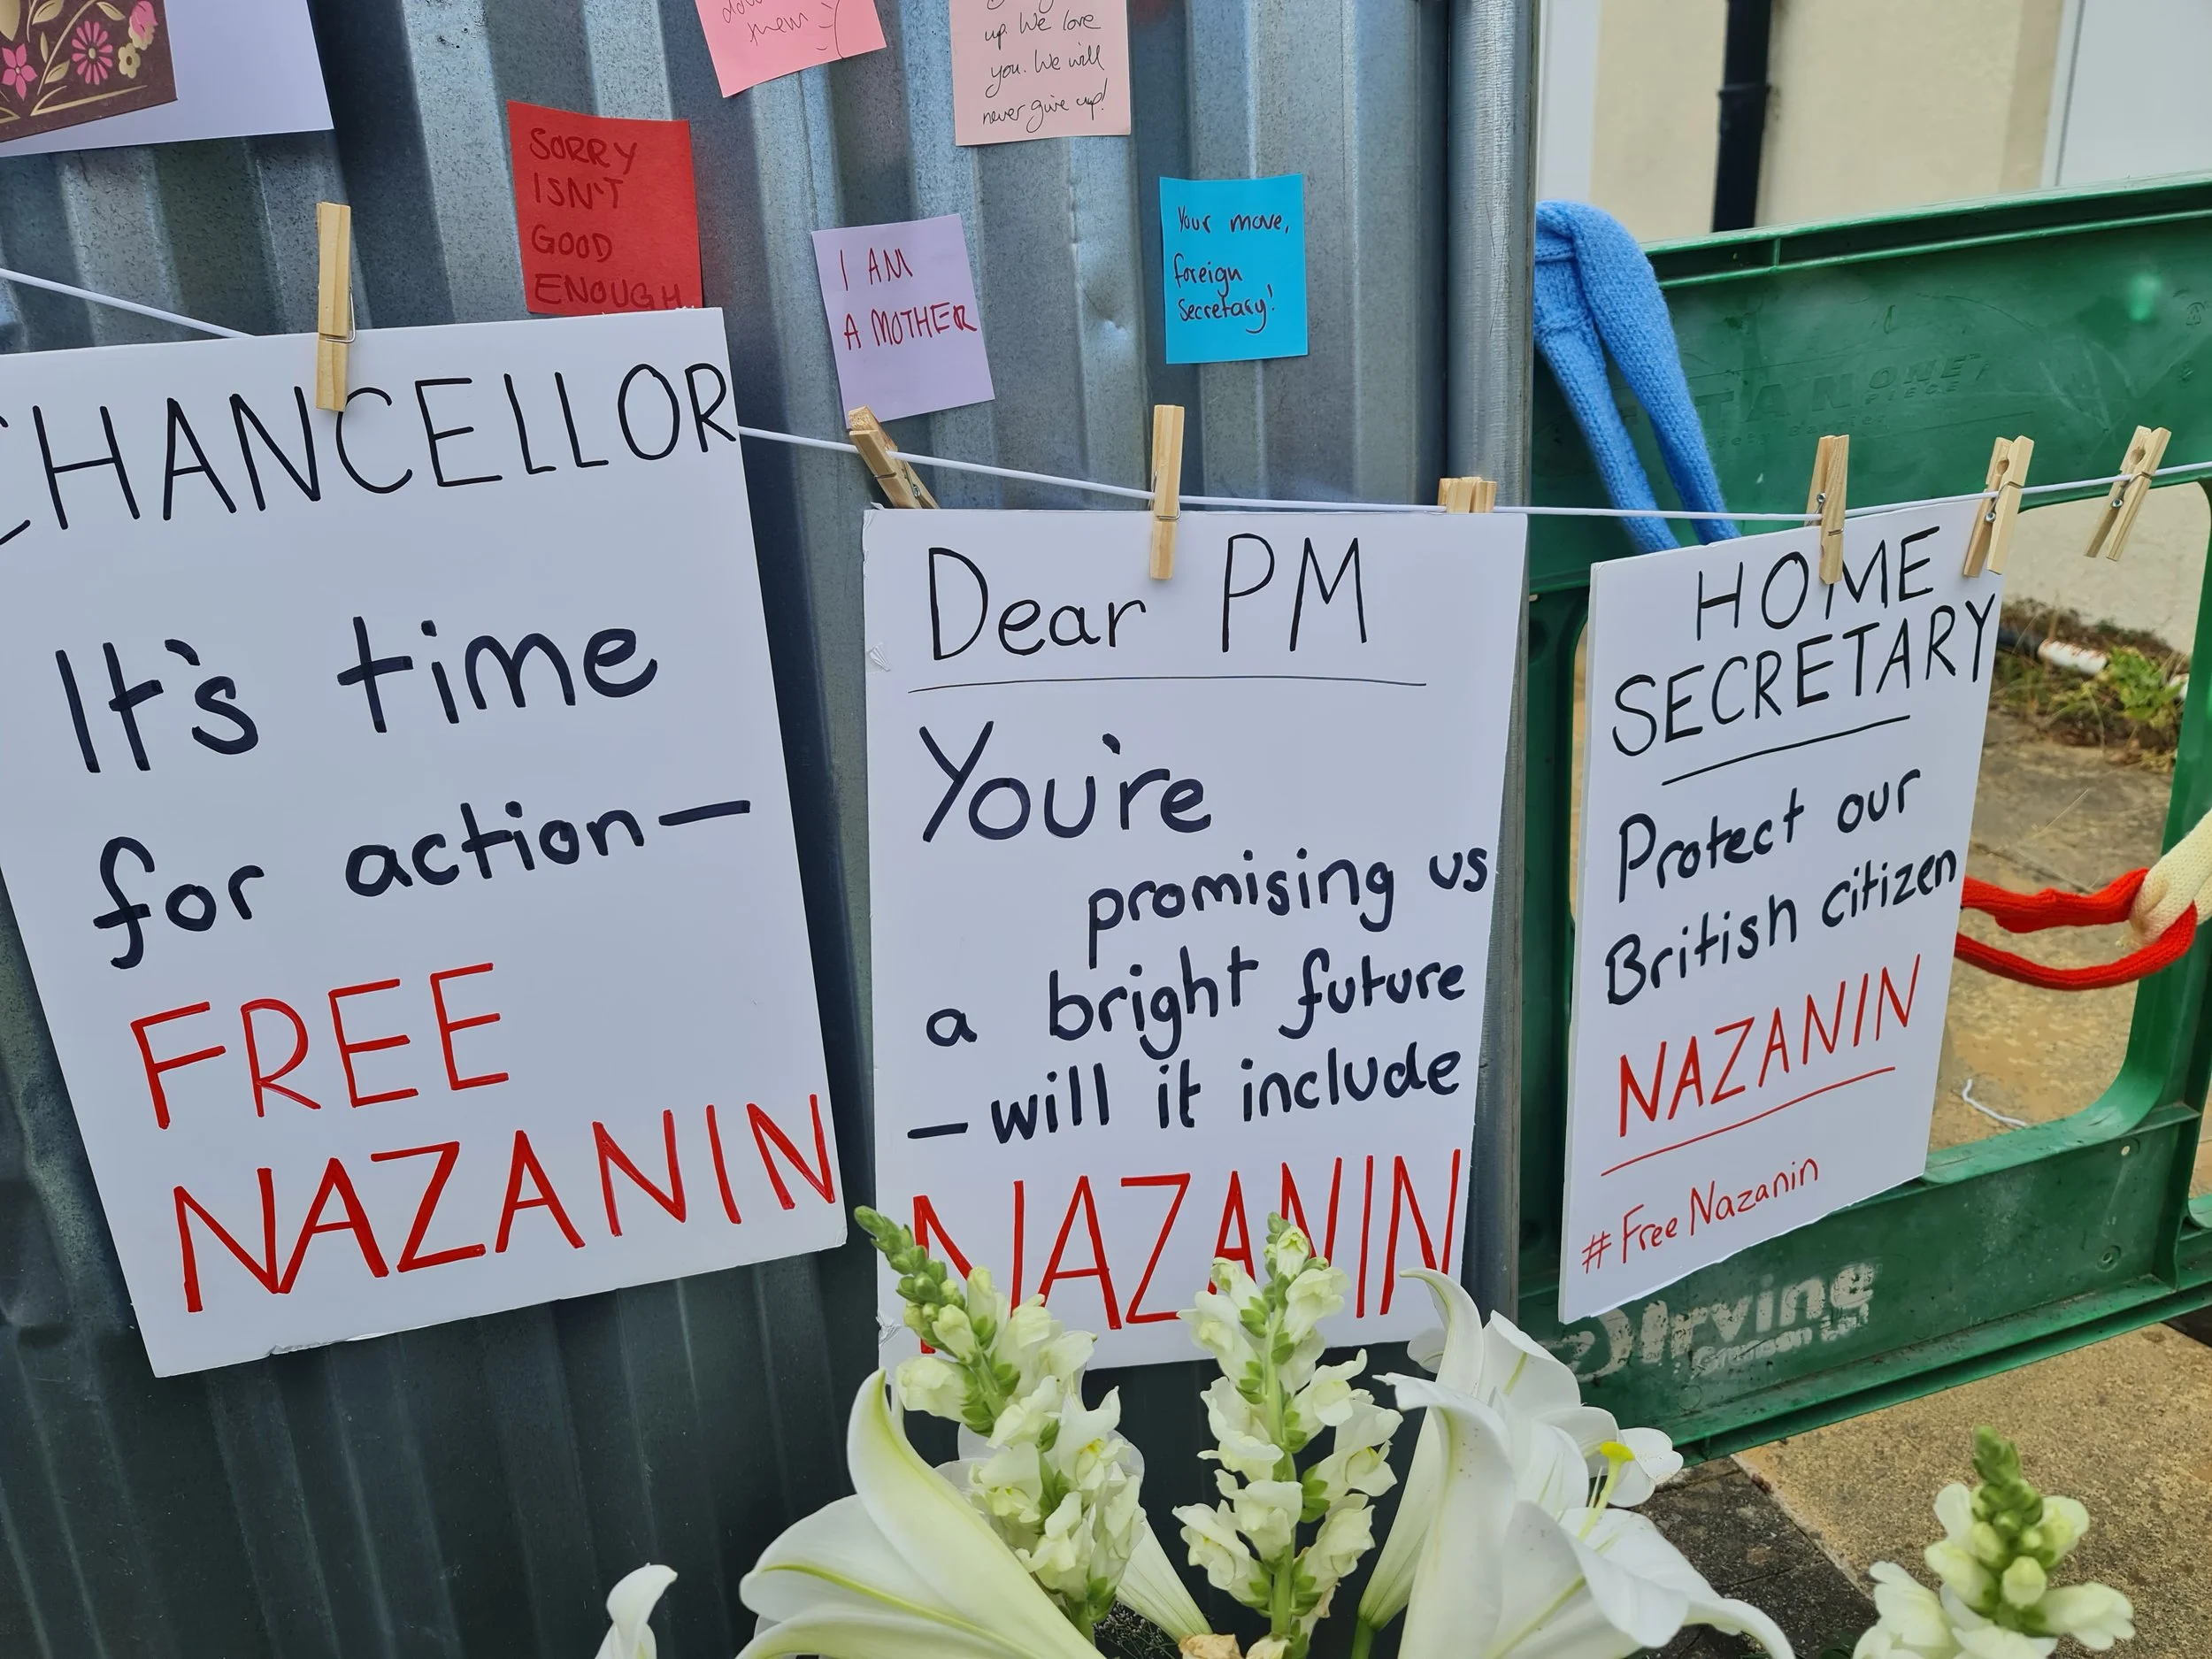 mem
up. We love
you. We will
never give up!
SORRY
ISN'T
GOOD
ENOUGH
I AM
A MOTHER
Your move,
foreign
Secretary!
CHANCELLOR
It's time
for action—
FREE
NAZANIN
Dear PM
You're
promising us
a bright future
—will it include
NAZANIN
HOME
SECRETARY
Protect our
British citizen
NAZANIN
#FreeNazanin
Irving